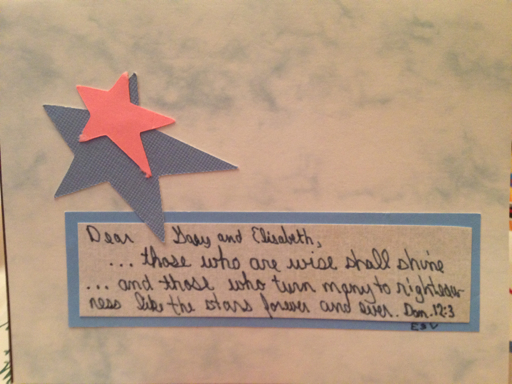 Dear Gary and Elisabeth,
... those who are wise shall shine
... and those who turn many to righteous-
ness like the stars forever and ever. Dan. 12:3
ESV